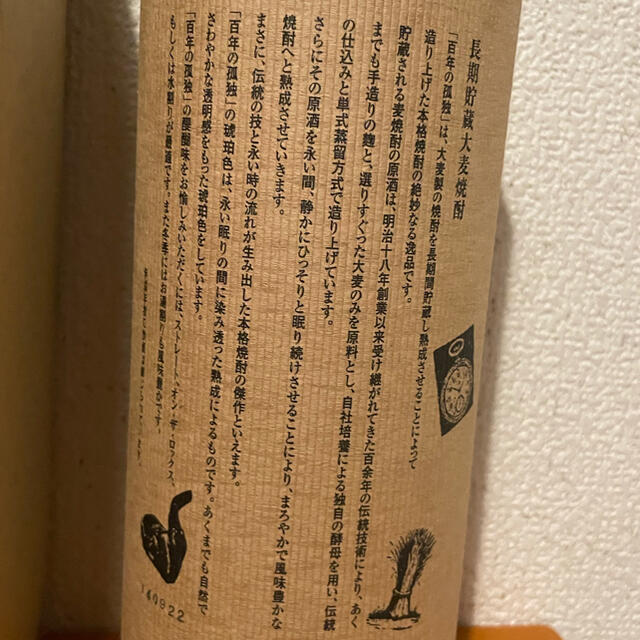 長期貯蔵大麦焼酎
「百年の孤独」は、大麦製の焼酎を長期間貯蔵し熟成させることによって
造り上げた本格焼酎の絶妙なる逸品です。
貯蔵される麦焼酎の原酒は、明治十八年創業以来受け継がれてきた百余年の伝統技術により、あく
までも手造りの麹と、選りすぐった大麦のみを原料とし、自社培養による独自の酵母を用い、伝統
の仕込みと単式蒸留方式で造り上げています。
さらにその原酒を永い間、静かにひっそりと眠り続けさせることにより、まろやかで風味豊かな
焼酎へと熟成させていきます。
まさに、伝統の技と永い時の流れが生み出した本格焼酎の傑作といえます。
「百年の孤独」の琥珀色は、永い眠りの間に染み透った熟成によるものです。あくまでも自然で
さわやかな透明感をもった琥珀色をしています。
「百年の孤独」の醍醐味をお愉しみいただくには、ストレート、オン・ザ・ロックス、
もしくは水割りが最適です。また冬季にはお湯割りも風味豊かです。
140922